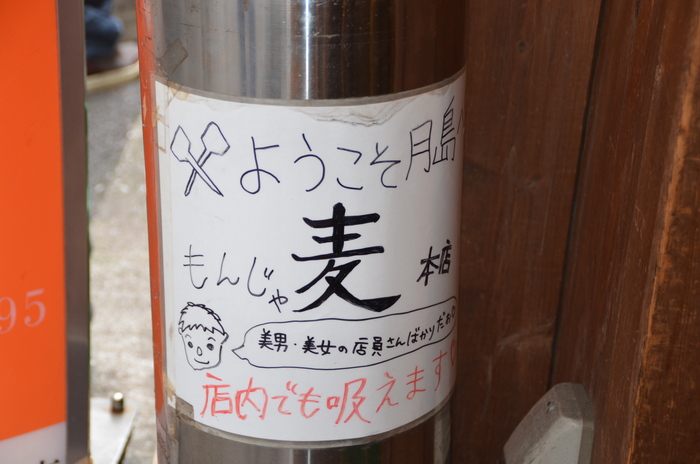 ようこそ月島へ
もんじゃ 麦 本店
美男・美女の店員さんばかりだよ
店内でも吸えます
95